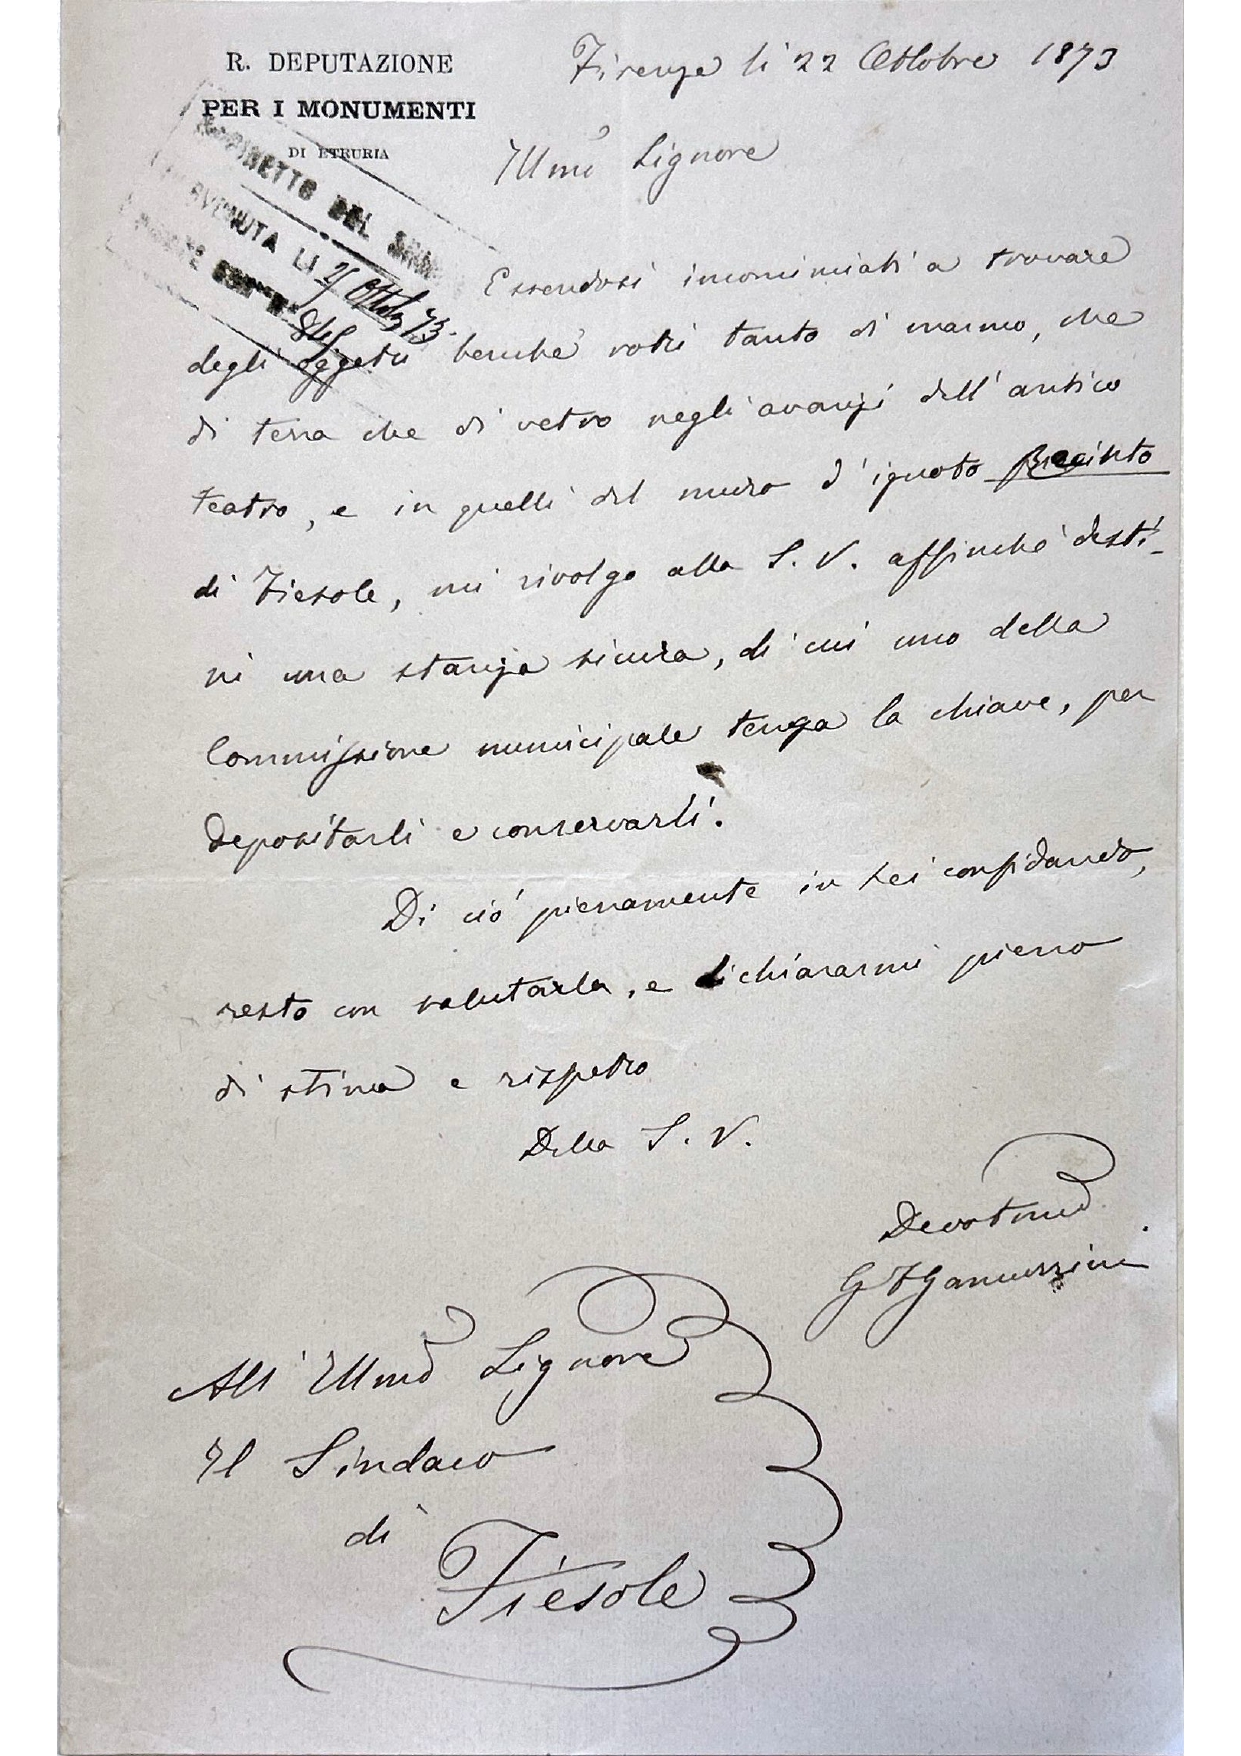 R. DEPUTAZIONE
PER I MONUMENTI
DI ETRURIA
Firenze li 22 Ottobre 1873
Illmo Signore
GABINETTO DEL SIND
PERVENUTA LI 25 Ottobre 73.
Essendosi incominciati a trovare
degli oggetti benchè rotti tanto di marmo, che
di terra che di vetro negli avanzi dell'antico
teatro, e in quelli del muro d'ignoto Recinto
di Fiesole, mi rivolgo alla S. V. affinchè desti-
ni una stanza sicura, di cui uno della
Commissione municipale tenga la chiave, per
depositarli e conservarli.
Di ciò pienamente in Lei confidando,
resto con salutarla, e dichiararmi pieno
di stima e rispetto
Della S. V.
Devotmo
G F Gamurrini
All' Illmo Signore
Il Sindaco
di
Fiesole